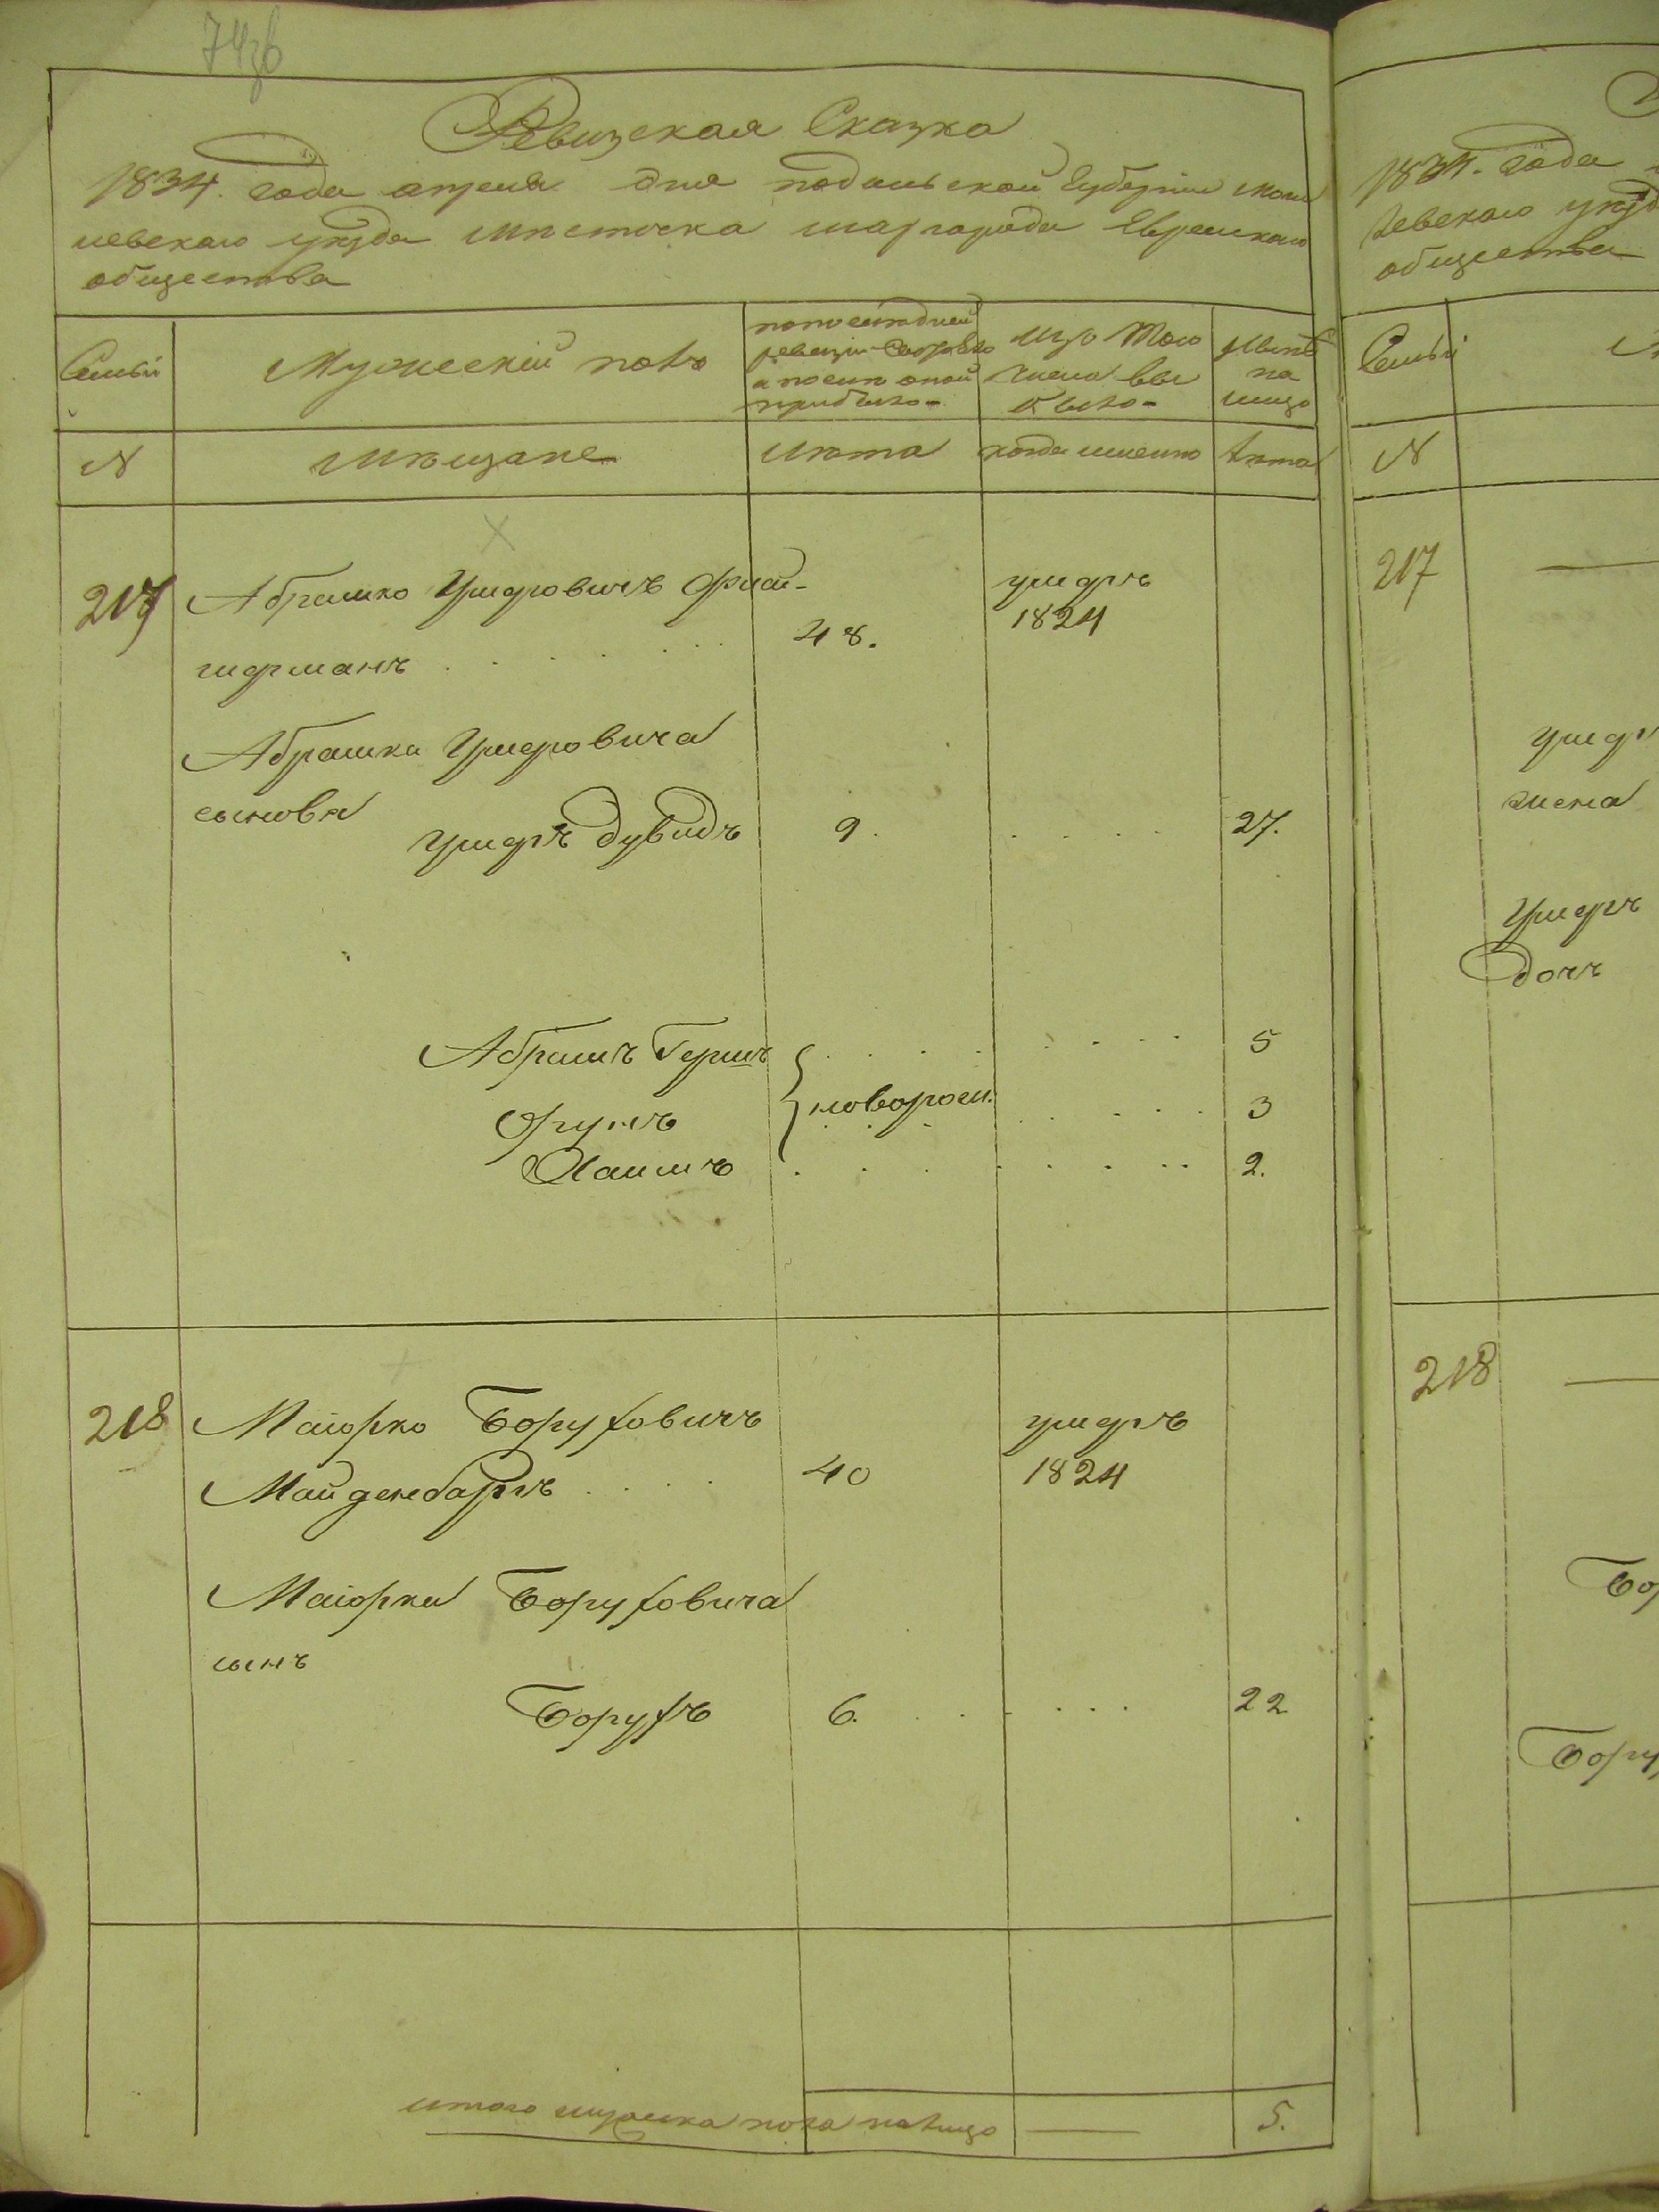 Ревизская Сказка
1834. года апреля дня подольской Губернии моги
левскаго уезда местечка шаргорода Еврейскаго
общества
Семьи
Мужескій полъ
по последней
ревизіи состояло
и после оной
прибыло
изъ того
числа вы
было
ныне
на
лицо
N
мещане
лета
когда именно
лета
217
Абрамко Ушеровичъ
48.
умеръ
1824
Абрамка Ушеровича
сыновя
Ушеръ Дувидъ
9.
27.
Абрамъ Гершъ
5
новорож.
3
Хаимъ
2.
218
Маіорко Боруховичъ
Майденбаргъ
40
умеръ
1824
Маіорка Боруховича
сынъ
Борухъ
6.
22
итого мужеска пола на лицо
5.
1834. года
левскаго уезд
общества
Семьи
N
217
умер
жена
Ушеръ
дочь
218
Бор
Бору